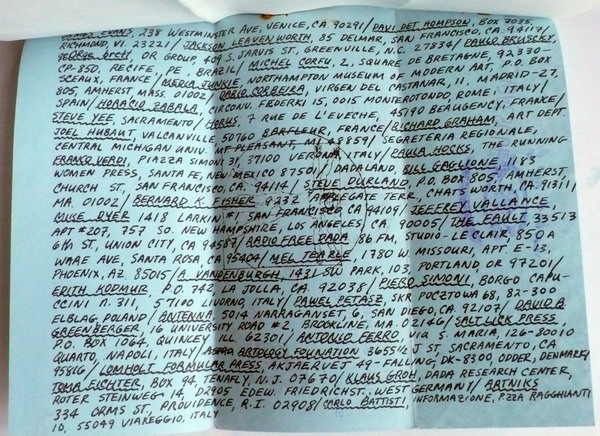 EVANS, 238 WESTMINSTER AVE, VENICE, CA. 90291/DAVI DET HOMPSON, BOX 7035,
RICHMOND, VI. 23221/JACKSON LEAVENWORTH, 35 DELMAR, SAN FRANCISCO, CA. 94117/
GEORGE OTCH, OR GROUP, 409 S. JARVIS ST, GREENVILLE, N.C. 27834/PAULO BRUSCKY,
CP-850, RECIFE, PE, BRAZIL/MICHEL CORFU, 2, SQUARE DE BRETAGNE, 92330-
SCEAUX, FRANCE/MEDIA JUNKIE, NORTHAMPTON MUSEUM OF MODERN ART, P.O. BOX
805, AMHERST, MASS. 01002/DARIO CORBEIRA, VIRGEN DEL CASTANAR, 11, MADRID-27,
SPAIN/HORACIO ZABALA, CIRCONV. FEDERKI 15, 0015 MONTEROTONDO, ROME, ITALY/
STEVE YEE, SACRAMENTO/HORUS, 7 RUE DE L'EVECHE, 45190 BEAUGENCY, FRANCE/
JOEL HUBAUT, VALCANVILLE, 50760 BARFLEUR, FRANCE/RICHARD GRAHAM, ART DEPT.
CENTRAL MICHIGAN UNIV. MT PLEASANT, MI 48859/SEGRETERIA REGIONALE,
FRANCO VERDI, PIAZZA SIMONI 31, 37100 VERONA, ITALY/PAULA HOCKS, THE RUNNING
WOMEN PRESS, SANTA FE, NEW MEXICO 87501/DADALAND, BILL GAGLIONE, 1183
CHURCH ST, SAN FRANCISCO, CA. 94114/STEVE DURLAND, P.O. BOX 805, AMHERST,
MA. 01002/BERNARD K. FISHER 9232 APPLEGATE TERR, CHATSWORTH, CA. 91311/
MIKE DYER 1418 LARKIN #1 SAN FRANCISCO, CA 94109/JEFFREY VALLANCE,
APT #207, 757 SO. NEW HAMPSHIRE, LOS ANGELES, CA. 90005/THE FAULT, 33513
6TH ST, UNION CITY, CA 94587/RADIO FREE DADA 86 FM, STUDIO-LE CLAIR, 850 A
WAAE AVE, SANTA ROSA, CA 95404/MEL TEARLE, 1780 W. MISSOURI, APT E-13,
PHOENIX, AZ. 85015/A. VANDENBURGH, 1431 SW PARK, 103, PORTLAND, OR 97201/
EDITH KODMUR, P.O. 742, LA JOLLA, CA. 92038/PIERO SIMONI, BORGO CAPU-
CCINI N. 311, 57100 LIVORNO, ITALY/PAWEL PETASZ, SKR POCZTOWA 68, 82-300
ELBLAG, POLAND/ANTENNA, 5014 NARRAGANSET, 6, SAN DIEGO, CA. 92107/DAVID B.
GREENBERGER, 16 UNIVERSITY ROAD #2, BROOKLINE, MA. 02146/SALT LICK PRESS
P.O. BOX 1064, QUINCY, ILL. 62301/ANTONIO FERRO, VIA S. MARIA, 126-80010
QUARTO, NAPOLI, ITALY/ARTOLOGY FOUNATION 3655½ J ST. SACRAMENTO, CA
95816/LOMHOLT FORMULAR PRESS, AKJAERVEJ 49-FALLING, DK-8300, ODDER, DENMARK/
TOMA FICHTER, BOX 94, TENAFLY, N.J. 07670/KLAUS GROH, DADA RESEARCH CENTER,
ROTER STEINWEG 14, D2905 EDEW. FRIEDRICHST. WEST GERMANY/ARTNIKS
334 ORMS ST., PROVIDENCE, R.I. 02908/CARLO BATTISTI, INFORMAZIONE, PZZA RAGGHIANTI
10, 55049 VIAREGGIO, ITALY